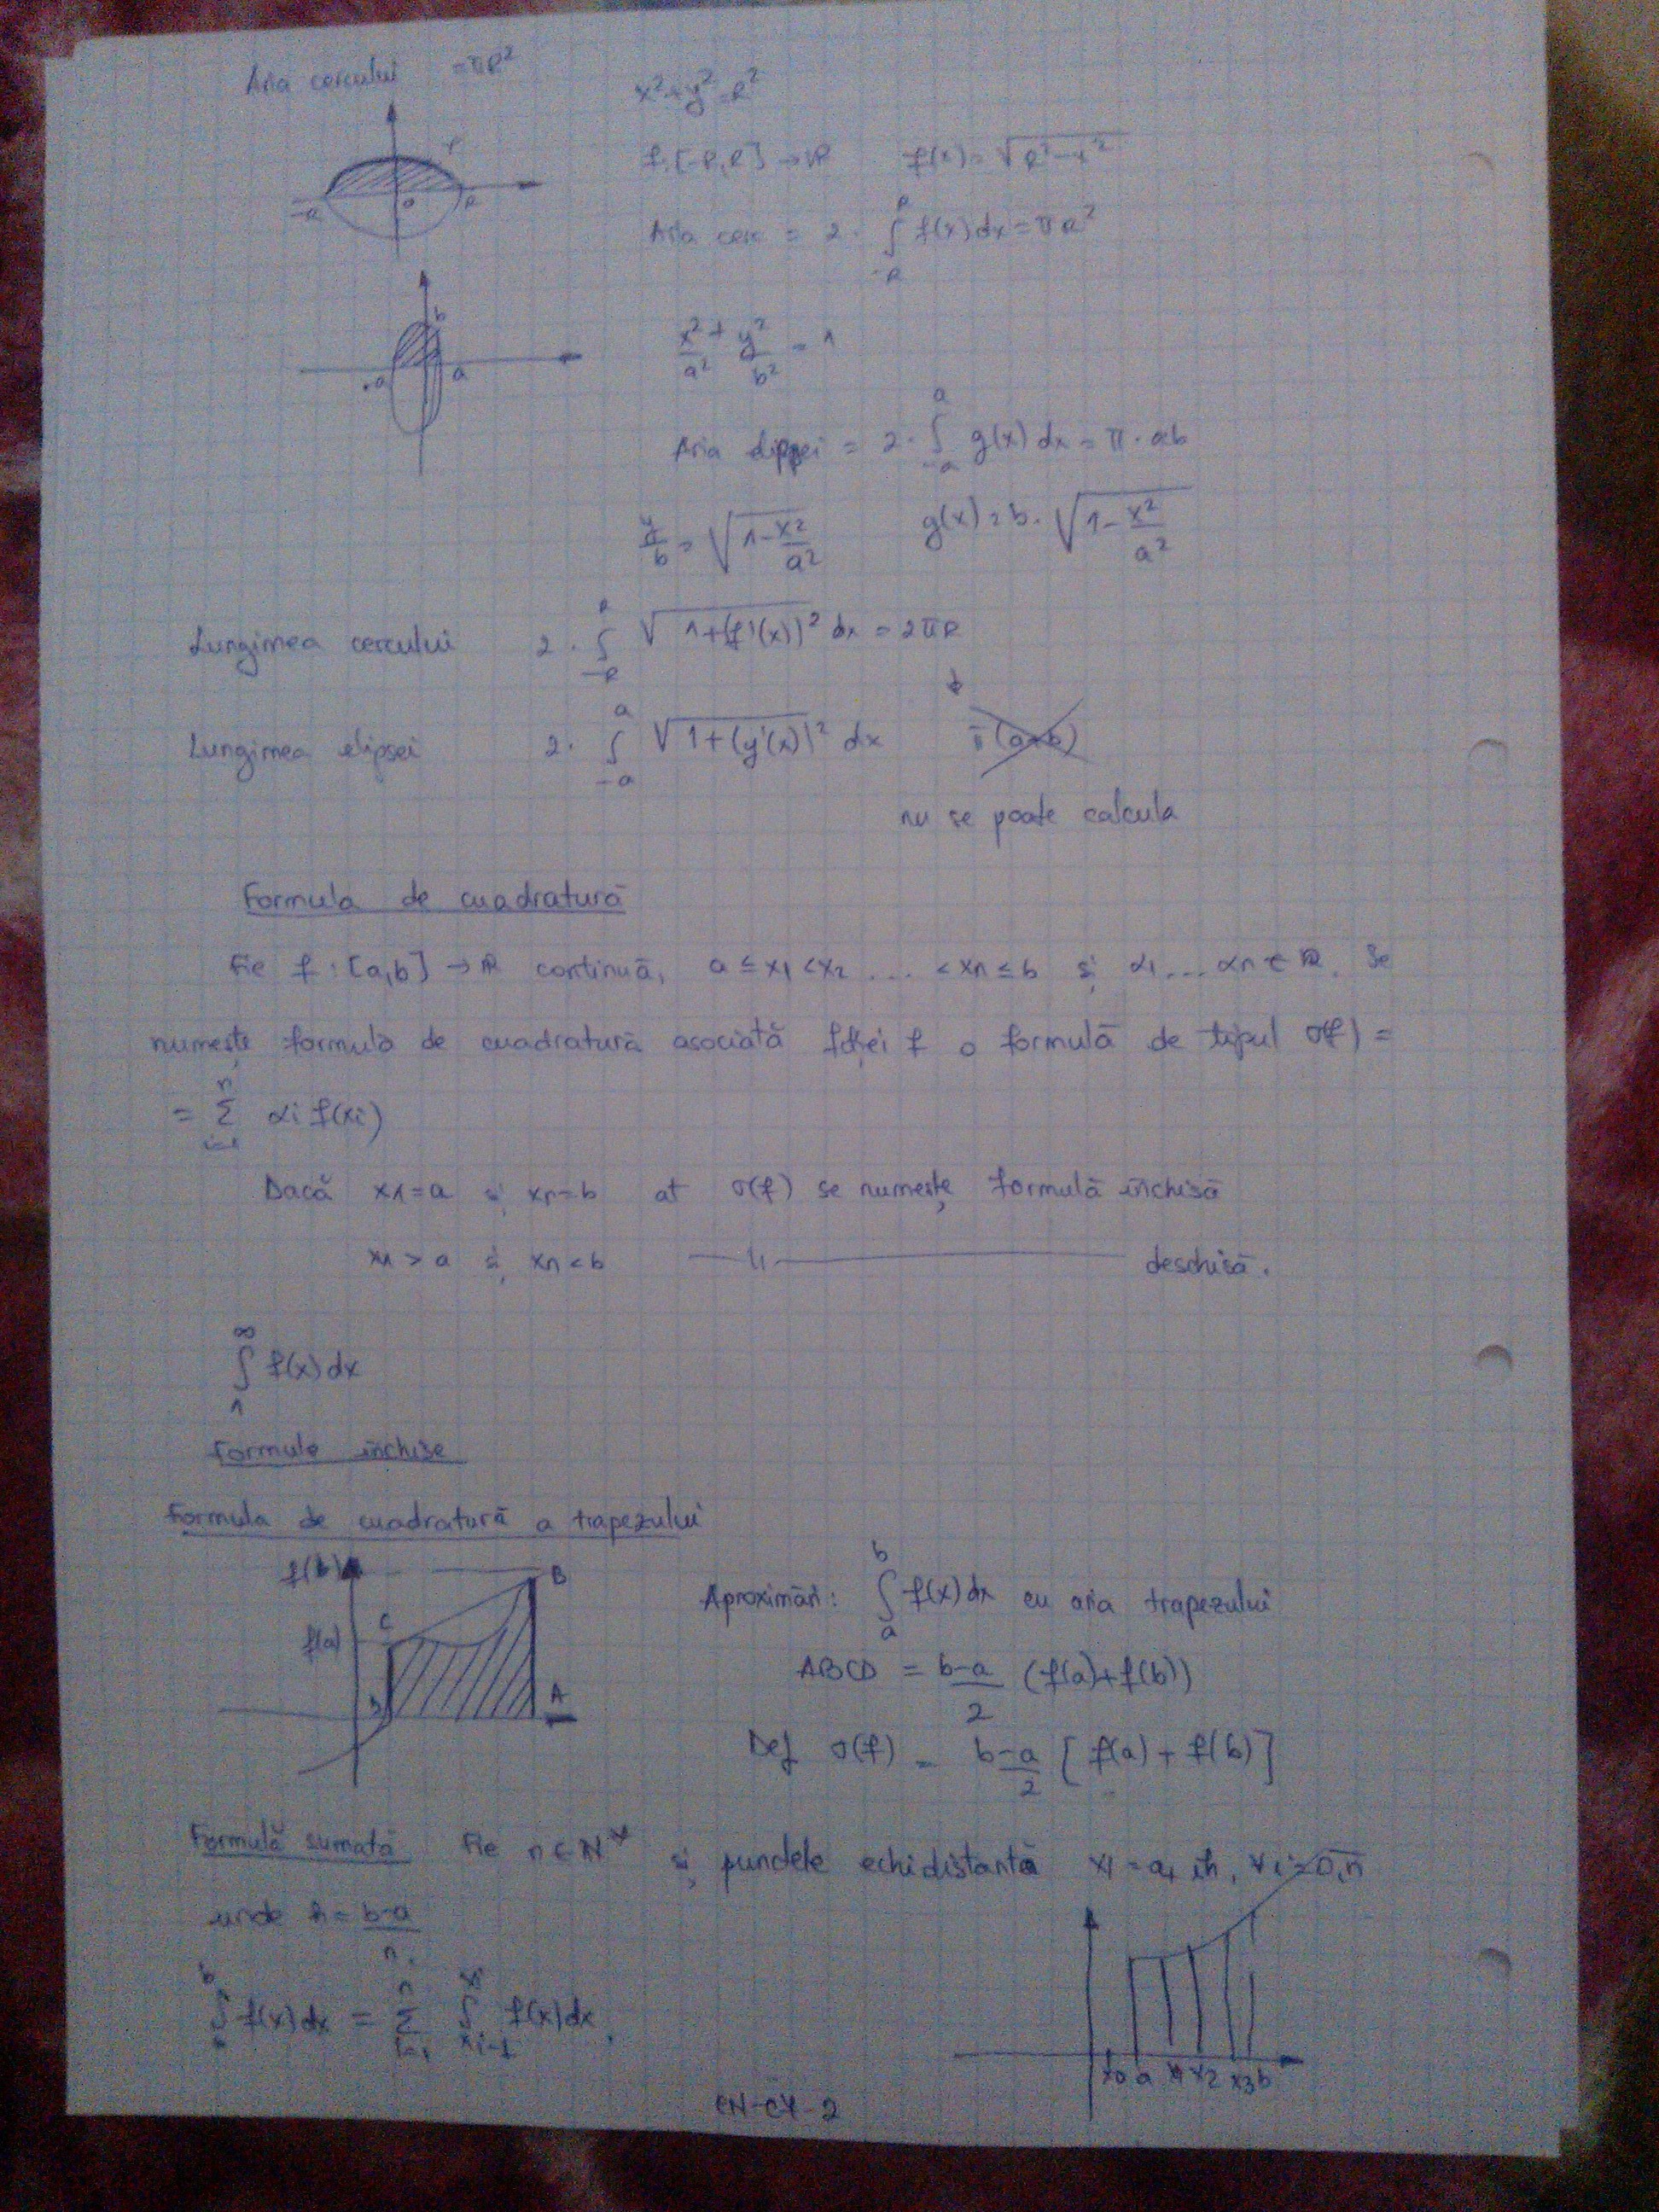 Aria cercului = πR²
x²+y²=R²
f:[-R,R] → ℝ f(x)=√(R²-x²)
-R 0 R
Aria cerc = 2 · ∫_{-R}^{R} f(x)dx = πR²
b
-a a
x²/a² + y²/b² = 1
Aria elipsei = 2 · ∫_{-a}^{a} g(x)dx = π · ab
y/b = √(1-x²/a²) g(x) = b · √(1-x²/a²)
Lungimea cercului 2 · ∫_{-R}^{R} √(1+(f'(x))²) dx = 2πR
Lungimea elipsei 2 · ∫_{-a}^{a} √(1+(y'(x))²) dx
nu se poate calcula
Formula de cuadratură
Fie f : [a,b] → ℝ continuă, a ≤ x1 < x2 ... < xn ≤ b și α1 ... αn ∈ ℝ. Se
numește formulă de cuadratură asociată fcției f o formulă de tipul σ(f) =
= Σ_{i=1}^{n} αi f(xi)
Dacă x1=a și xn=b at σ(f) se numește formulă închisă
x1 > a și xn < b —〃— deschisă.
∫_{1}^{∞} f(x)dx
Formule închise
Formula de cuadratură a trapezului
f(b) B
f(a) C
D A
Aproximăm: ∫_{a}^{b} f(x)dx cu aria trapezului
ABCD = (b-a)/2 (f(a)+f(b))
Def σ(f) = (b-a)/2 [f(a) + f(b)]
Formulă sumată Fie n ∈ ℕ* și punctele echidistantă xi = a+ih, ∀ i=0,n
unde h = (b-a)/n.
∫_{a}^{b} f(x)dx = Σ_{i=1}^{n} ∫_{xi-1}^{xi} f(x)dx.
x0 a x1 x2 x3 b
CN-C4-2